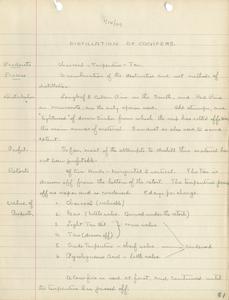 DISTILLATION OF CONIFERS.
Products Charcoal - Turpentine - Tar.
Process A combination of the destructive and wet methods of
distillation.
Longleaf & Cuban Pine in the South, and Red Pine
in Minnesota, are the only species used. Old stumps, and
"lightwood" of down timber from which the sap has rotted off
the main source of material. Sawdust is also used to some
extent.
Profit. So far most of the attempts to distill this material has
not been profitable.
Retorts Of two kinds - horizontal & vertical. The Tar is
drawn off from the bottom of the retort. The turpentine passes
off as vapor and is condensed.
Value of
Products.
1. Charcoal (valuable)
2. Gas (little value. Burned under the retorts)
3. Light Tar Oil
4. Tar (drawn off)
some value
5. Crude Turpentine - chief value
6. Pyroligneous Acid - little value
condensed
A low fire is used at first, and continued until
the turpentine has passed off.
81